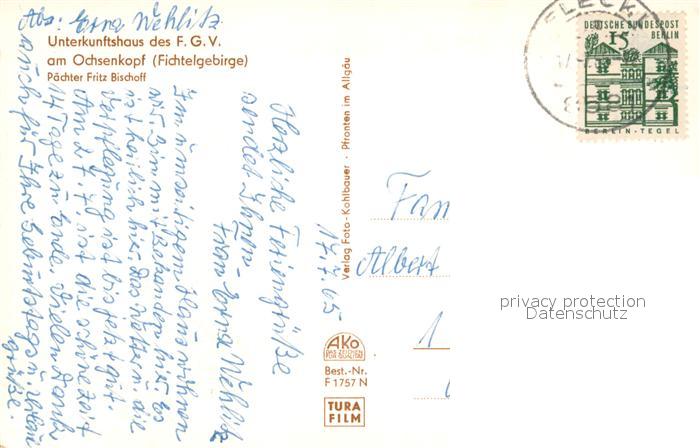 Abs: Erna Wehlitz
Unterkunftshaus des F. G. V.
am Ochsenkopf (Fichtelgebirge)
Pächter Fritz Bischoff
17.7.65
Herzliche Feriengrüße
sendet Ihnen
Frau Erna Wehlitz
In unmöchtigem Hause wohnen
wir. Bin mit Behanden hier. Es
ist herrlich hier. Das Wetter u. die
Verpflegung ist bis jetzt gut.
Am 27.7. ist die schöne Zeit
14 Tage zu Ende. Vielen Dank
auch für Ihre Geburtstags u.
grüße.
Verlag Foto-Kohlbauer · Pfronten im Allgäu
AKO
DAS ZEICHEN
FÜR QUALITÄT
Best.-Nr.
F 1757 N
TURA
FILM
DEUTSCHE BUNDESPOST
BERLIN
15
BERLIN-TEGEL
Fam
Albert
1
privacy protection
Datenschutz